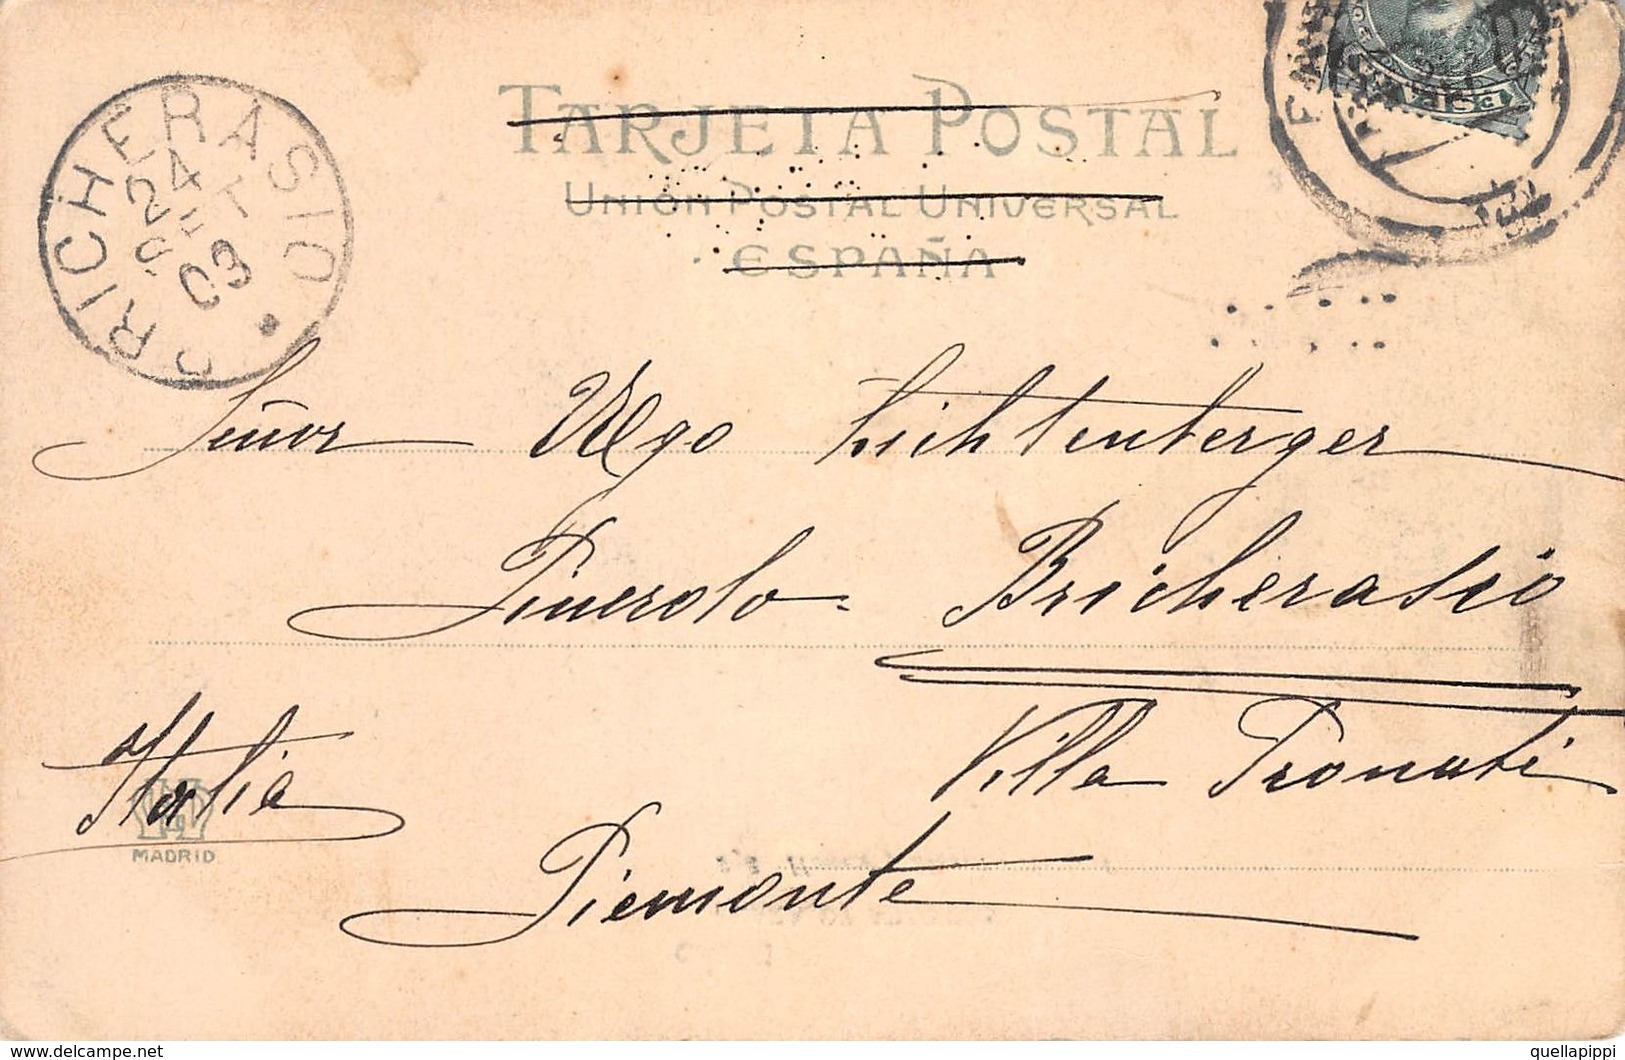 TARJETA POSTAL
UNIÓN POSTAL UNIVERSAL
ESPAÑA
BRICHERASIO
24
SET
03
Señor Ugo Lichtenberger
Pinerolo - Bricherasio
Villa Pronuti
Italia
Piemonte
MADRID
delcampe.net
quellapippi